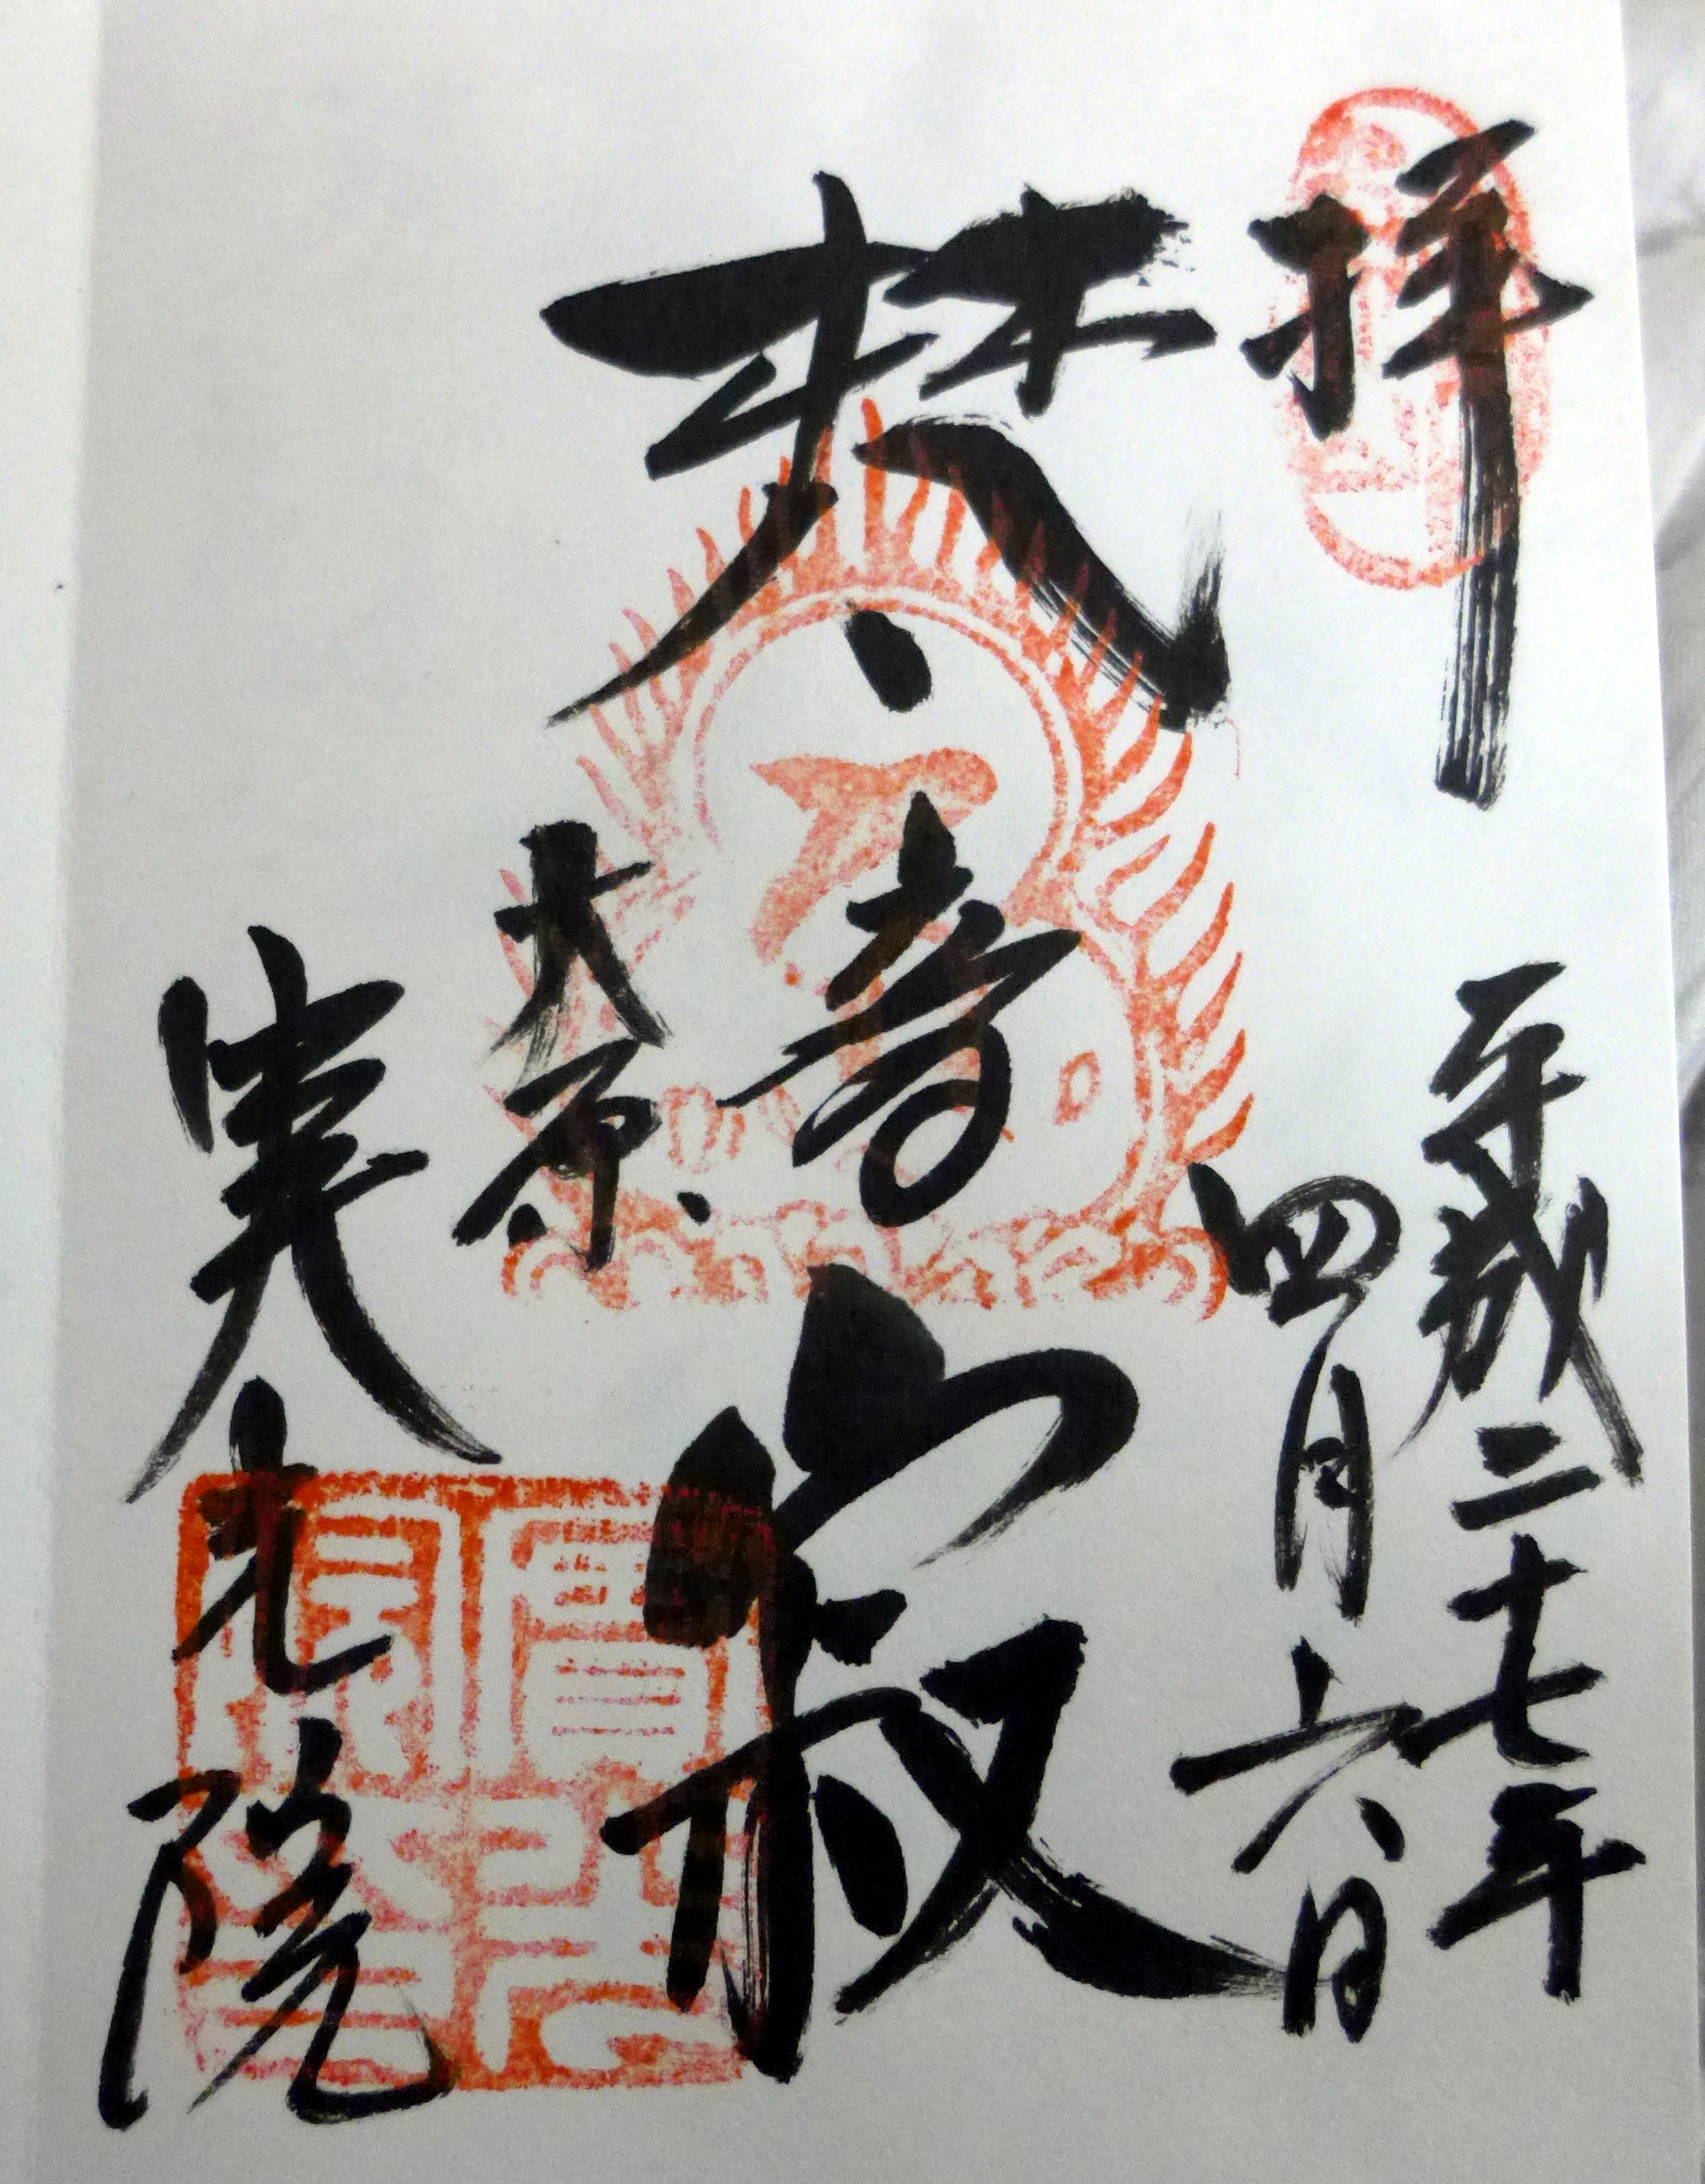 拝
平成二十七年
四月六日
梵音寂
大原
実光院